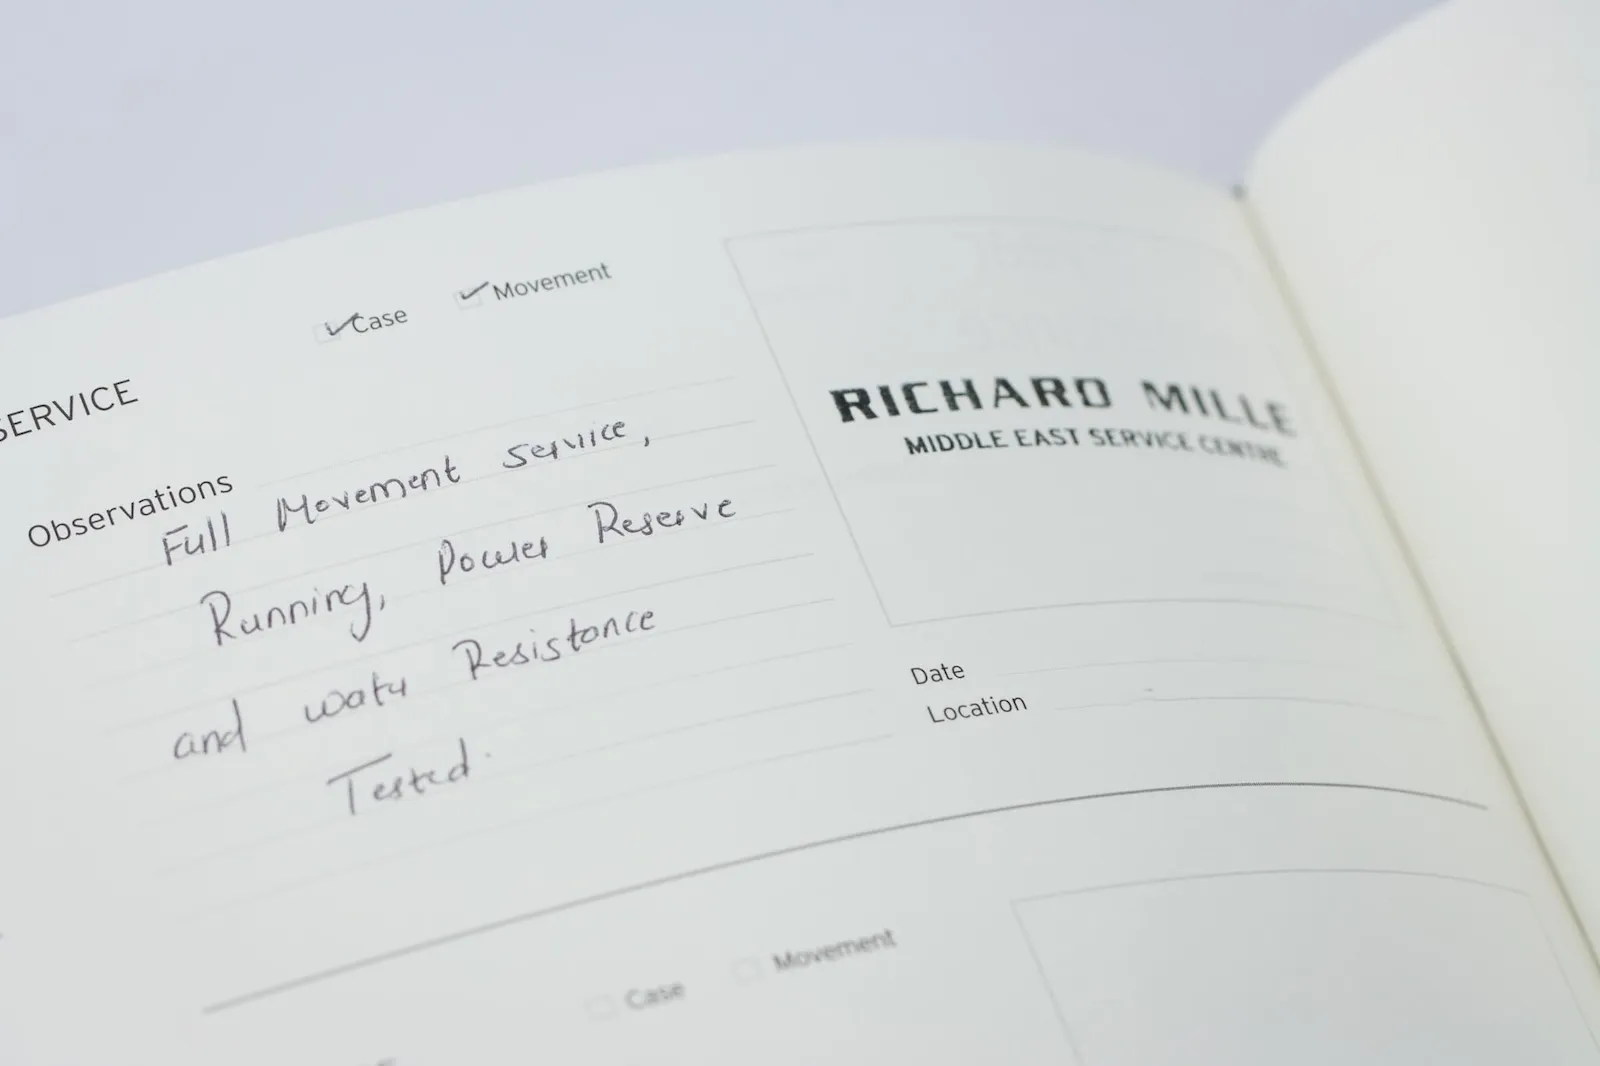 Case
Movement
SERVICE
Observations
Full Movement service,
Running, Power Reserve
and water Resistance
Tested.
RICHARD MILLE
MIDDLE EAST SERVICE CENTRE
Date
Location
Case
Movement